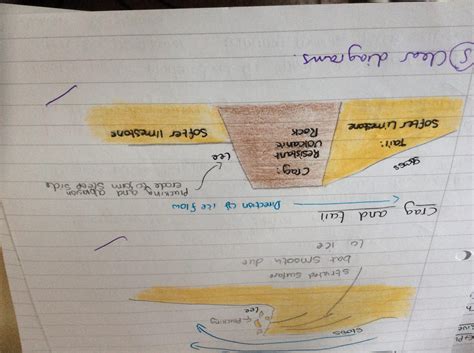 Stoss
Lee
Plucking
striated surface
but smooth due
to ice
Crag and tail
Direction of ice flow
Plucking and abrasion
erode to form steep side
Stoss
Lee
Crag:
Resistant
Volcanic
Rock
Tail:
Softer Limestone
Softer limestone
Clear diagrams.